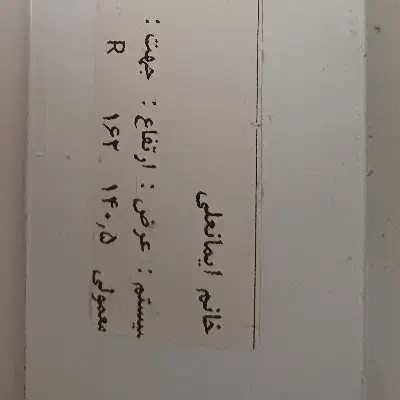 خانم ایمانعلی
سیستم : عرض : ارتفاع : جهت :
معمولی ۱۴۰,۵ ۱۶۲ R